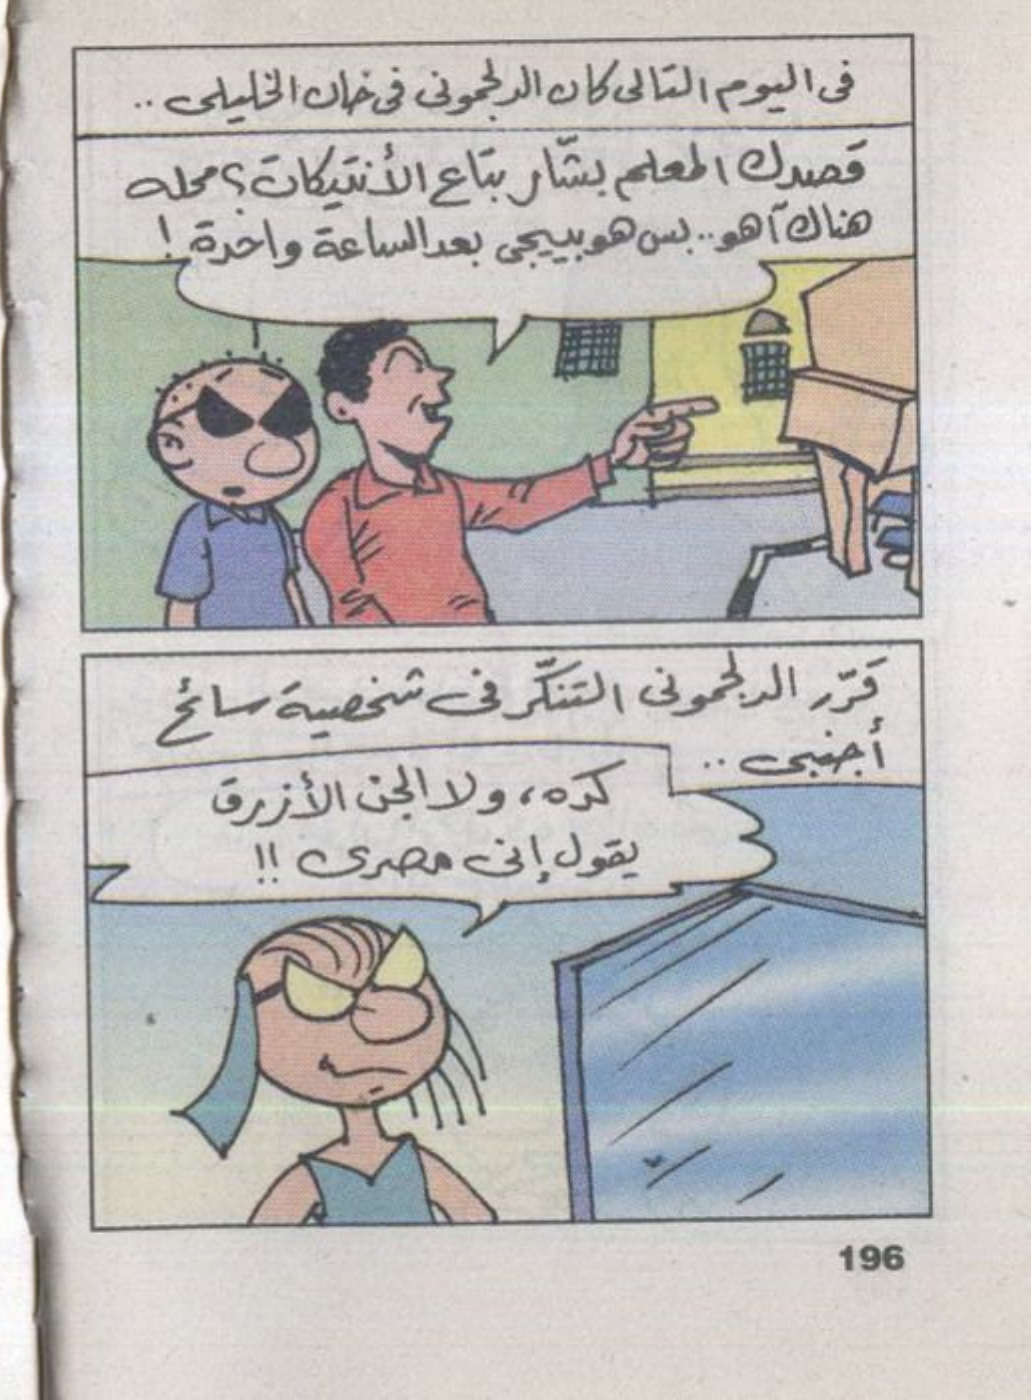 فى اليوم التالى كان الدلجمونى فى خان الخليلى ..
قصدك المعلم بشّار بتاع الأنتيكات؟ محله
هناك آهو.. بس هو بييجى بعد الساعة واحدة !
قرّر الدلجمونى التنكّر فى شخصية سائح
أجنبى ..
كده، ولا الجن الأزرق
يقول إنى مصرى !!
196